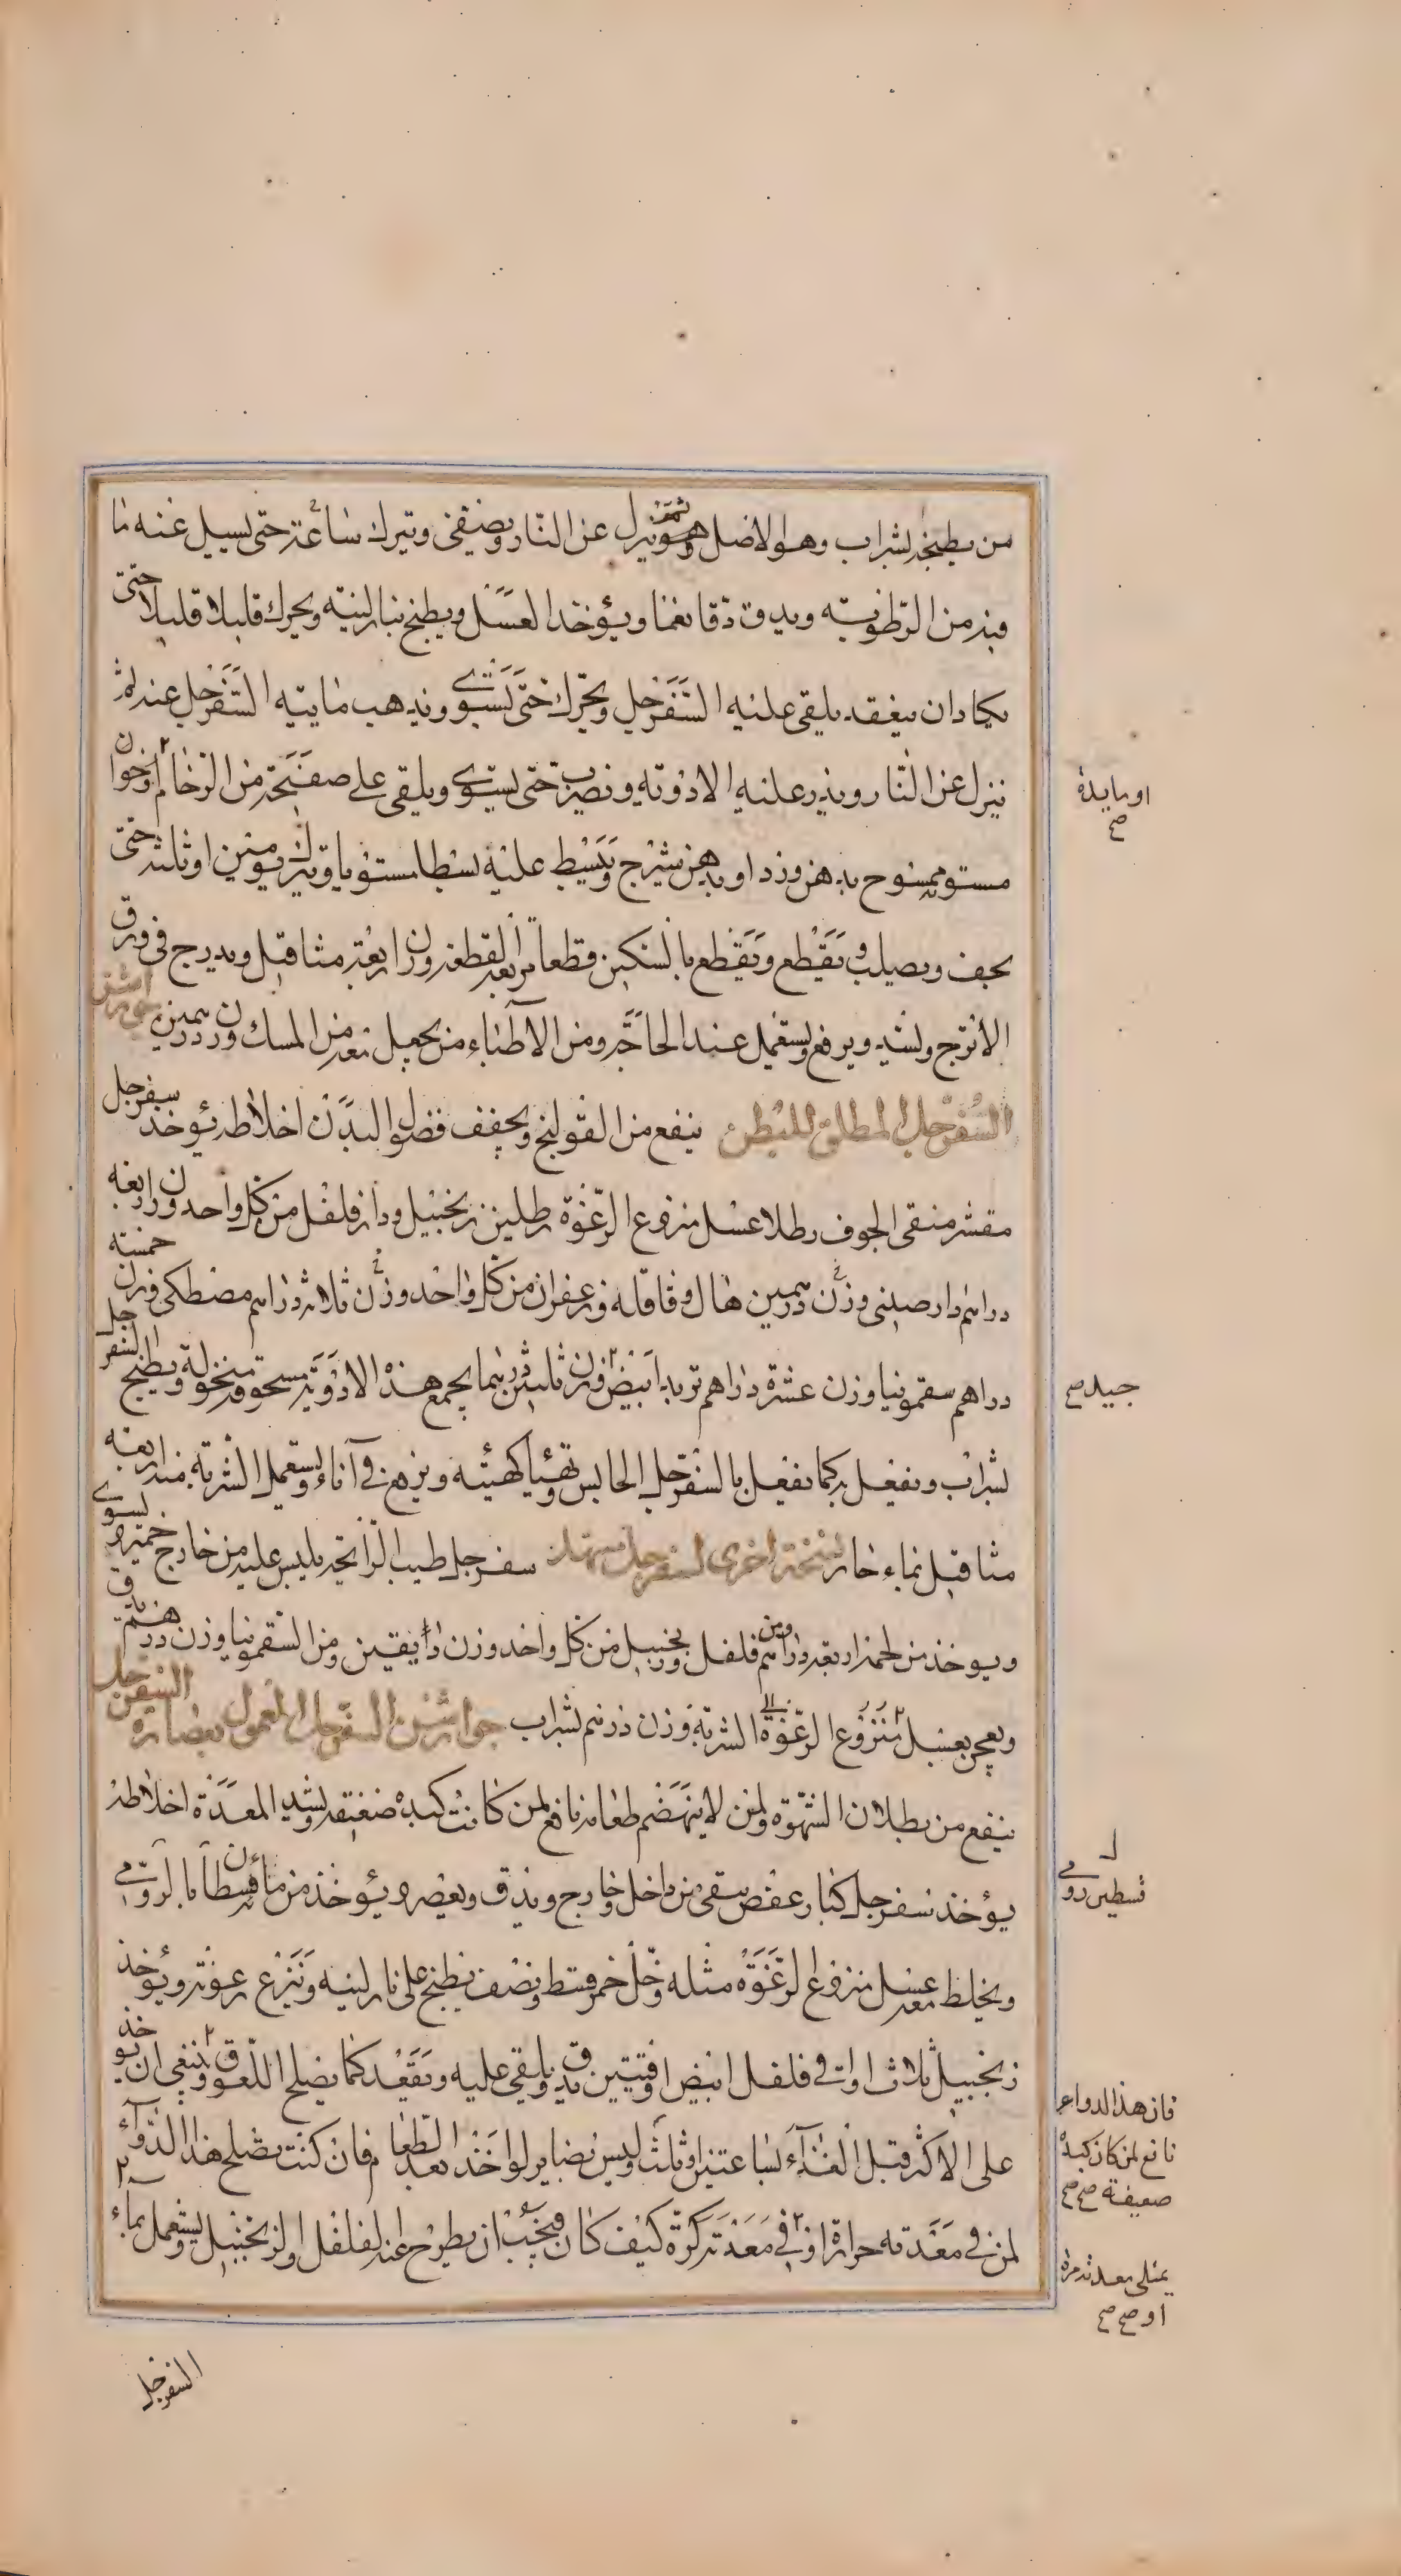 من يطبخه بشراب وهو الاصل وهو ثم ينزل عن النار ويصفى ويترك ساعة حتى يسيل عنه ما
فيه من الرطوبة ويدق دقا نعما ويؤخذ العسل ويطبخ بنار لينة ويحرك قليلا قليلا حتى
يكاد ان ينعقد يلقى عليه السفرجل ويحرك حتى يستوى ويذهب مايية السفرجل عنه ثم
ينزل عن النار ويذر عليه الادوية ويضرب حتى يستوى ويلقى على صفيحة من الرخام او خوان
مستو ممسوح بدهن ورد او بدهن شيرج ويبسط عليه بسطا مستويا ويترك يومين او ثلثة حتى
يجف ويصلب ويقطع ويقطع بالسكين قطعا مربعة القطعة وزن اربعة مثاقيل ويدرج فى ورق
الاترج ويشد ويرفع ويستعمل عند الحاجة ومن الاطباء من يجعل معه من المسك وزن درهمين جوارشن
السفرجل المطلق للبطن ينفع من القولنج ويجفف فضول البدن اخلاطه يؤخذ سفرجل
مقشر منقى الجوف رطلا عسل منزوع الرغوة رطلين زنجبيل ودار فلفل من كل واحد وزن اربعة
دراهم دارصينى وزن درهمين هال وقاقله وزعفران من كل واحد وزن ثلاثة دراهم مصطكى وزن خمسة
دراهم سقمونيا وزن عشرة دراهم تربد ابيض وزن ثلثين درهما يجمع هذه الادوية مسحوقة منخولة ويطبخ السفرجل
بشراب ويفعل به كما يفعل بالسفرجل الحابس ويهيأ كهيئته ويرفع فى آناء ويستعمل الشربة منه اربعة
مثاقيل بماء حار نسخة اخرى لسفرجل مسهل سفرجل طيب الرائحة يلبس عليه من خارج خمير ويسوى
ويوخذ من لحمه اربعة دراهم ومن فلفل وزنجبيل من كل واحد وزن دانقين ومن السقمونيا وزن درهم يدق
ويعجن بعسل منزوع الرغوة الشربة وزن درهم بشراب جوارشن السفرجل المعمول بعصارة السفرجل
ينفع من بطلان الشهوة ولمن لا ينهضم طعامه نافع لمن كانت كبده ضعيفة ويشد المعدة اخلاطه
يؤخذ سفرجل كبار عفص ينقى من داخل وخارج ويدق ويعصر ويؤخذ من مائه قسطا بالرومى
ويخلط معه عسل منزوع الرغوة مثله وخل خمر قسط ونصف يطبخ على نار لينة وينزع رغوته ويؤخذ
زنجبيل ثلاث اواقى فلفل ابيض اوقيتين يدق ويلقى عليه ويعقد كما يصلح اللعوق وينبغى ان يوخذ
على الاكثر قبل الغذآء بساعتين او ثلث وليس بضاير لو اخذ بعد الطعام فان كنت تصلح هذا الدواء
لمن فى معدته حرارة او فى معدته كرة كيف كان فيجب ان يطرح عنه الفلفل والزنجبيل ويستعمل بماء
او مايدة
صح
جبلى صح
قسطين رومى
فان هذا الدواء
نافع لمن كان كبده
ضعيفة صح صح
يمتلى معدته مرة
او صح صح
السفرجل